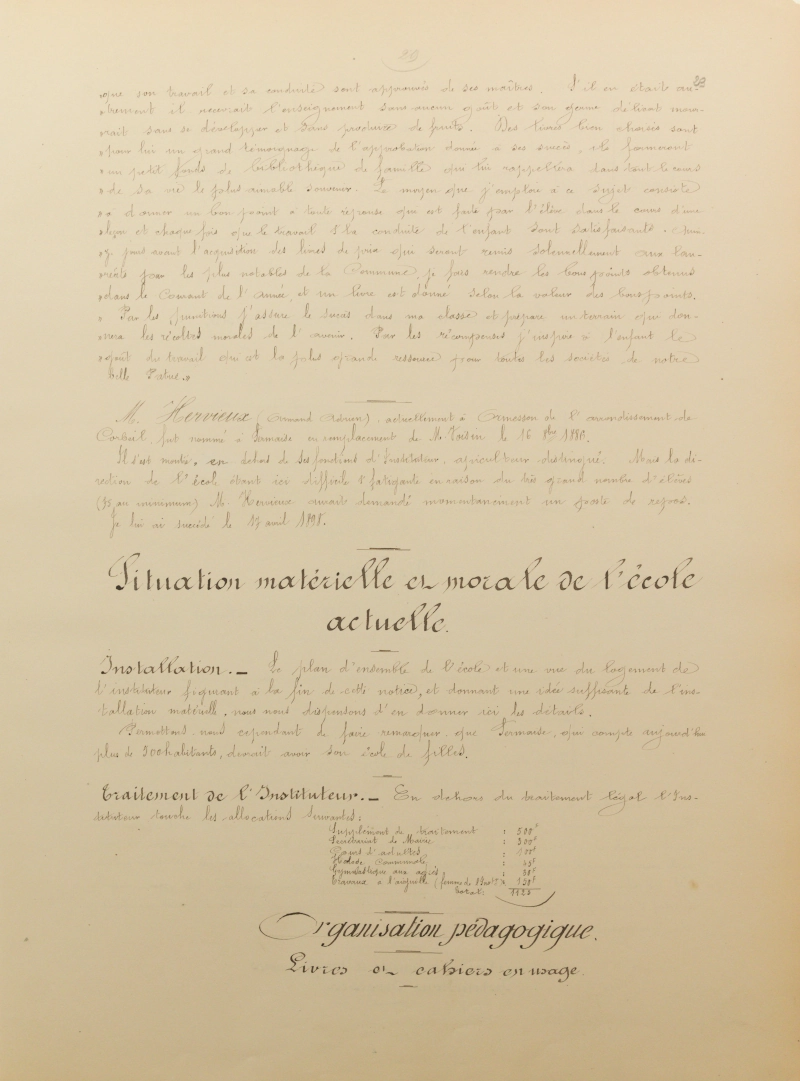 29
»que son travail et sa conduite sont approuvés de ses maîtres. S'il en était au-
»trement il recevrait l'enseignement sans aucun goût et son germe délicat mour-
»rait sans se développer et sans produire de fruits. Des livres bien choisis sont
»pour lui un grand témoignage de l'approbation donnée à ses succès, ils formeront
»un petit fonds de bibliothèque de famille qui lui rappellera dans tout le cours
»de sa vie le plus aimable souvenir. Le moyen que j'emploie à ce sujet consiste
»à donner un bon point à toute réponse qui est faite par l'élève dans le cours d'une
»leçon et chaque fois que le travail et la conduite de l'enfant sont satisfaisants.
»jours avant l'acquisition des livres de prix qui seront remis solennellement aux lau-
»réats par les plus notables de la Commune, je fais rendre les bons points obtenus
»dans le courant de l'année, et un livre est donné selon la valeur des bons points.
» Par les punitions j'assure le succès dans ma classe et prépare un terrain qui don-
»nera les récoltes morales de l'avenir. Par les récompenses j'inspire à l'enfant le
»goût du travail qui est la plus grande ressource pour toutes les sociétés de notre
belle Patrie.»
M. Hervieux (Armand Adrien), actuellement à Ormesson de l'arrondissement de
Corbeil, fut nommé à Sermaise en remplacement de M. Voisin le 16 8bre 1880.
Il s'est montré, en dehors de ses fonctions d'Instituteur, apiculteur distingué. Mais la di-
rection de l'école étant ici difficile et fatigante en raison du très grand nombre d'élèves
(75 au minimum) M. Hervieux aurait demandé momentanément un poste de repos.
Je lui ai succédé le 17 avril 1898.
Situation matérielle et morale de l'école
actuelle.
Installation. _ Le plan d'ensemble de l'école et une vue du logement de
l'instituteur figurant à la fin de cette notice, et donnant une idée suffisante de l'ins-
tallation matérielle, nous nous dispensons d'en donner ici les détails.
Permettons-nous cependant de faire remarquer que Sermaise, qui compte aujourd'hui
plus de 500 habitants, devrait avoir son école de filles.
Traitement de l'Instituteur. _ En dehors du traitement légal l'Ins-
tituteur touche les allocations suivantes:
Supplément de traitement : 500f
Secrétariat de Mairie : 300f
Cours d'adultes : 100f
Horloge Communale :
Gymnastique aux agrès :
Travaux à l'aiguille (femme de l'Instr) :
Total:
Organisation pédagogique.
Livres et cahiers en usage.